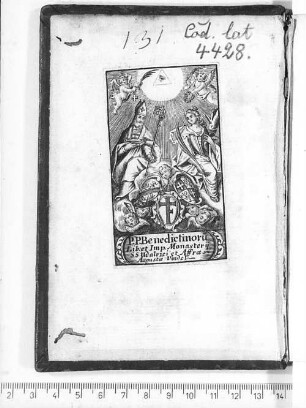 131 Cod. lat
4428.
P.P. Benedictinorũ
Lib. et Imp. Monastery
SS. Udalrici et Affræ
Augustæ Vindel.
2 1 0 1 2 3 4 5 6 7 8 9 10 11 12 13 14